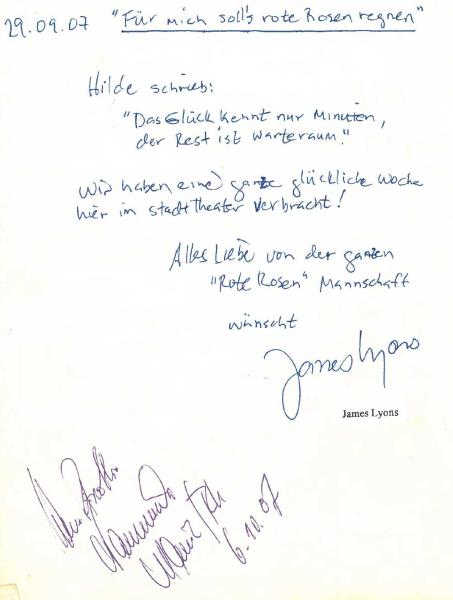 29.09.07 "Für mich soll's rote Rosen regnen"
Hilde schrieb:
"Das Glück kennt nur Minuten,
der Rest ist Warteraum."
Wir haben eine ganze glückliche Woche
hier im Stadttheater verbracht!
Alles Liebe von der ganzen
"Rote Rosen" Mannschaft
wünscht
James Lyons
James Lyons
6.10.07